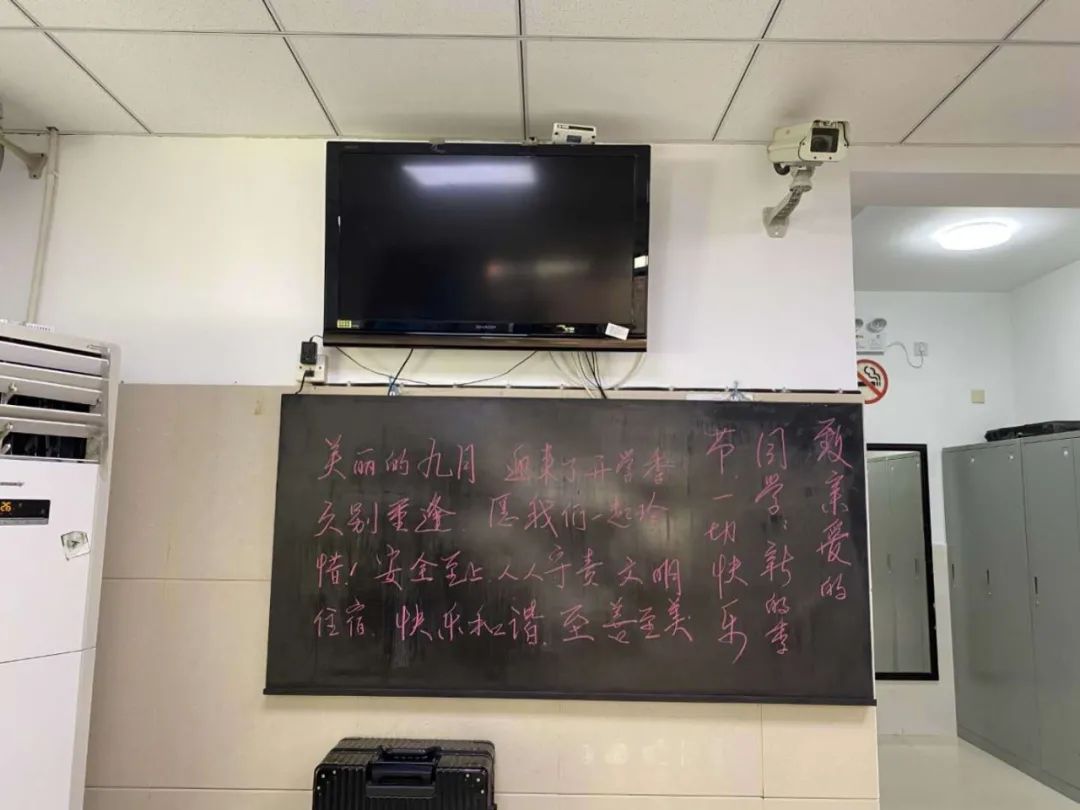 致亲爱的
同学：新的季
节，一切快乐
美丽的九月 迎来了开学季
久别重逢 愿我们一起珍
惜！安全至上，人人守责 文明
住宿，快乐和谐，至善至美
SHARP
26